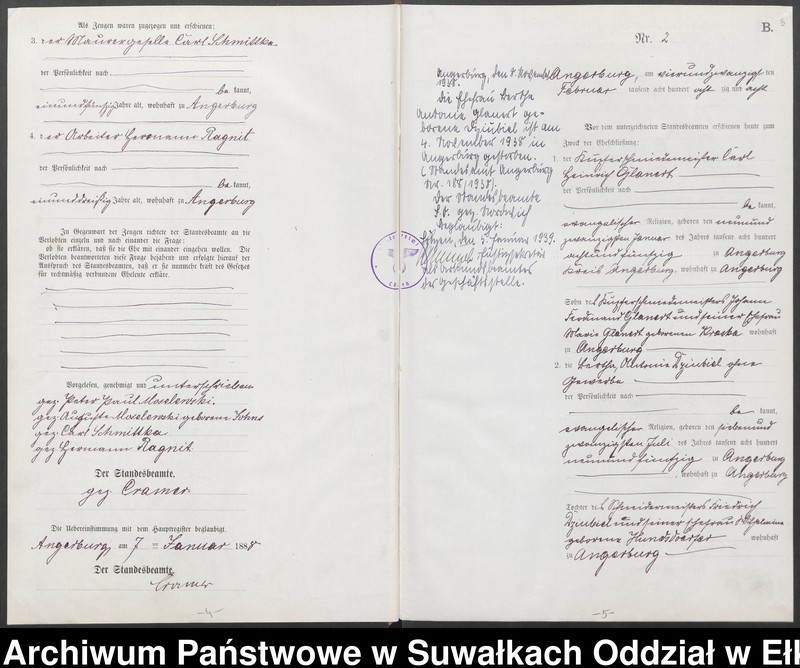 Als Zeugen waren zugezogen und erschienen:
3. der Maurergeselle Carl Schmittka
der Persönlichkeit nach
be kannt,
einundfünfzig Jahre alt, wohnhaft zu Angerburg
4. der Arbeiter Hermann Ragnit
der Persönlichkeit nach
be kannt,
Jahre alt, wohnhaft zu Angerburg
In Gegenwart der Zeugen richtete der Standesbeamte an die
Verlobten einzeln und nach einander die Frage:
ob sie erklären, daß sie die Ehe mit einander eingehen wollen. Die
Verlobten beantworteten diese Frage bejahend und erfolgte hierauf der
Ausspruch des Standesbeamten, daß er sie nunmehr kraft des Gesetzes
für rechtmäßig verbundene Eheleute erkläre.
Vorgelesen, genehmigt und unterschrieben
gez. Peter Paul
gez. Auguste geborene
gez. Carl Schmittka
gez. Hermann Ragnit
Der Standesbeamte.
gez. Cramer.
Die Uebereinstimmung mit dem Hauptregister beglaubigt
Angerburg, am 7 ten Januar 1888
Der Standesbeamte.
Cramer
-4-
B.
Nr. 2
Angerburg, den 8. November
1938.
Die Ehefrau Bertha
Antonie Glanert ge-
borene Dziubiel ist am
4. November 1938 in
Angerburg gestorben.
(Standesamt Angerburg
Nr. 188/1938).
Der Standesbeamte
gez.
Beglaubigt:
den 5. Januar 1939.
als Urkundsbeamter
der Geschäftsstelle.
Angerburg, am vierundzwanzigsten
Februar tausend acht hundert acht zig und acht
Vor dem unterzeichneten Standesbeamten erschienen heute zum
Zweck der Eheschließung:
1. der Kupferschmiedemeister Carl
Heinrich Glanert
der Persönlichkeit nach
be kannt,
evangelischer Religion, geboren den neunund
zwanzigsten Januar des Jahres tausend acht hundert
achtundfünfzig zu Angerburg
Kreis Angerburg, wohnhaft zu Angerburg
Sohn des Kupferschmiedemeisters Johann
Ferdinand Glanert und seiner Ehefrau
Marie Glanert geborenen wohnhaft
zu Angerburg
2. die Bertha, Antonie Dziubiel ohne
Gewerbe
der Persönlichkeit nach
be kannt,
evangelischer Religion, geboren den siebenund
zwanzigsten Juli des Jahres tausend acht hundert
neunundfünfzig zu Angerburg
, wohnhaft zu Angerburg
Tochter des Schneidermeisters Friedrich
Dziubiel und seiner Ehefrau Wilhelmine
geborene Hundsdoerfer wohnhaft
zu Angerburg
-5-
Archiwum Państwowe w Suwałkach Oddział w Eł